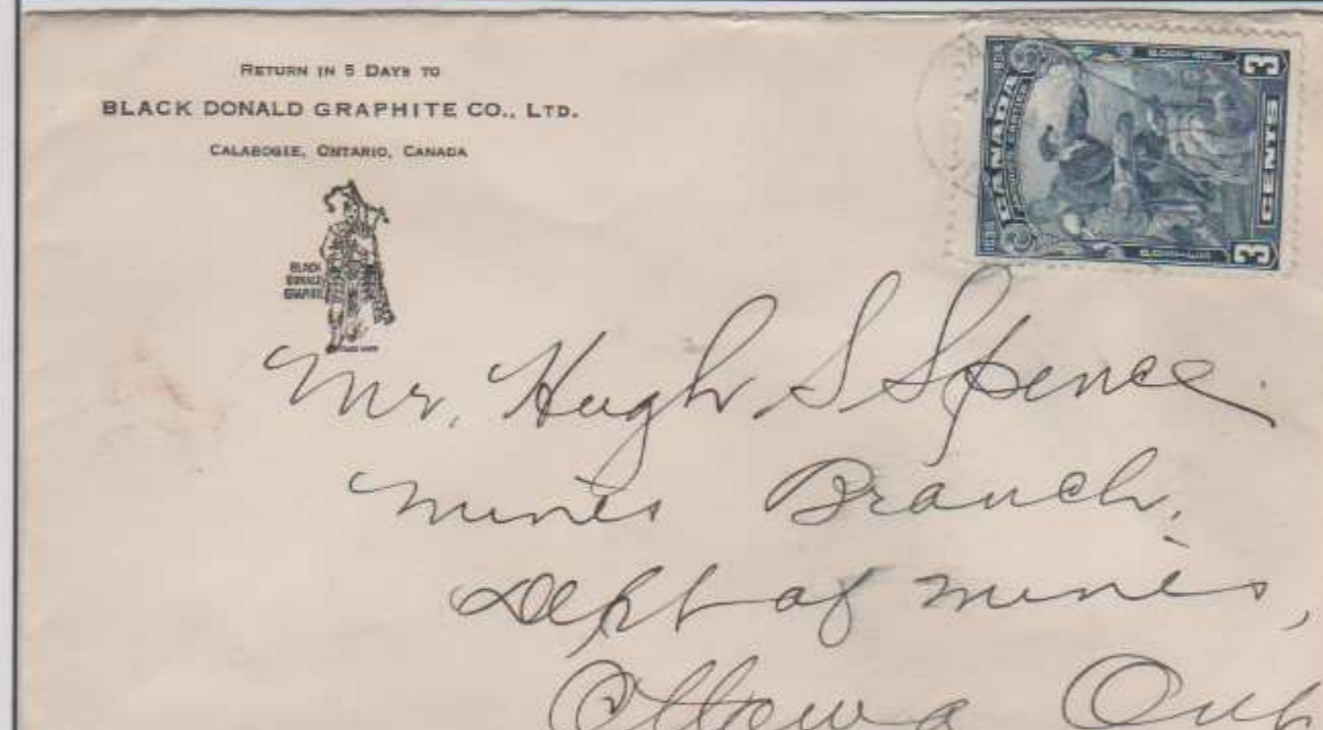 RETURN IN 5 DAYS TO
BLACK DONALD GRAPHITE CO., LTD.
CALABOGIE, ONTARIO, CANADA
BLACK
DONALD
GRAPHITE
CANADA
3 CENTS 3
Mr. Hugh S Spence.
Mines Branch.
Dept of Mines,
Ottawa Ont